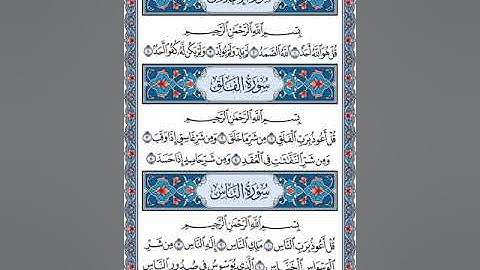 بِسْمِ اللَّهِ الرَّحْمَٰنِ الرَّحِيمِ
قُلْ هُوَ اللَّهُ أَحَدٌ ١ اللَّهُ الصَّمَدُ ٢ لَمْ يَلِدْ وَلَمْ يُولَدْ ٣ وَلَمْ يَكُن لَّهُ كُفُوًا أَحَدٌ ٤
سُورَةُ الْفَلَقِ
بِسْمِ اللَّهِ الرَّحْمَٰنِ الرَّحِيمِ
قُلْ أَعُوذُ بِرَبِّ الْفَلَقِ ١ مِن شَرِّ مَا خَلَقَ ٢ وَمِن شَرِّ غَاسِقٍ إِذَا وَقَبَ ٣
وَمِن شَرِّ النَّفَّاثَاتِ فِي الْعُقَدِ ٤ وَمِن شَرِّ حَاسِدٍ إِذَا حَسَدَ ٥
سُورَةُ النَّاسِ
بِسْمِ اللَّهِ الرَّحْمَٰنِ الرَّحِيمِ
قُلْ أَعُوذُ بِرَبِّ النَّاسِ ١ مَلِكِ النَّاسِ ٢ إِلَٰهِ النَّاسِ ٣ مِن شَرِّ
الْوَسْوَاسِ الْخَنَّاسِ ٤ الَّذِي يُوَسْوِسُ فِي صُدُورِ النَّاسِ